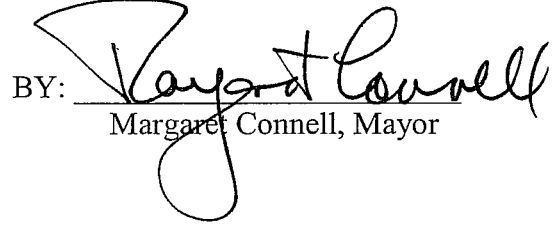 BY: Margaret Connell
Margaret Connell, Mayor